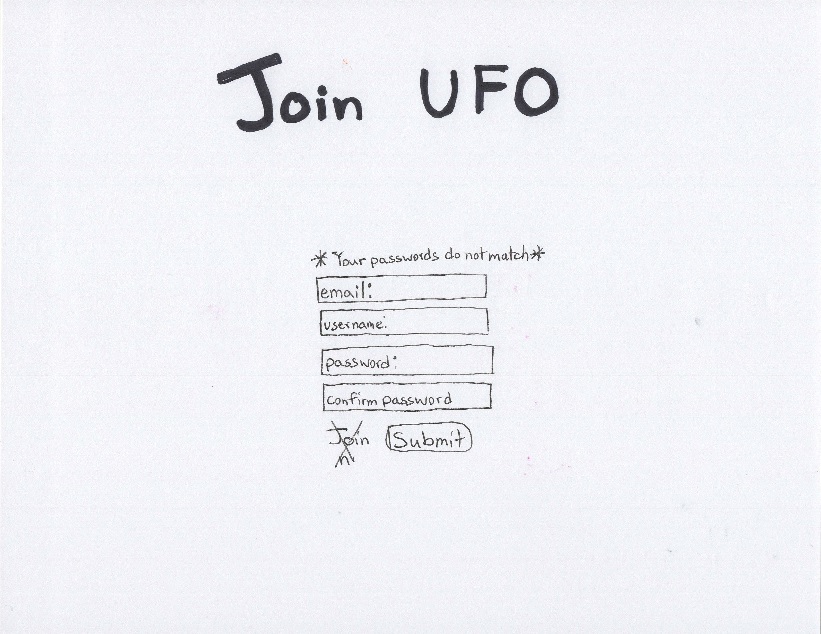 Join UFO
*Your passwords do not match*
email:
username:
password:
confirm password
Submit